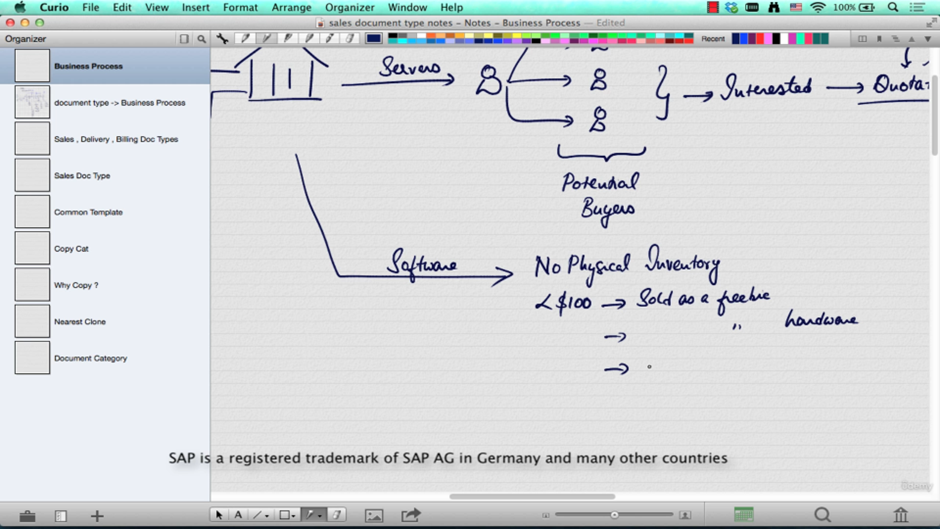 Curio File Edit View Insert Format Arrange Organizer Window Help 100%
sales document type notes - Notes - Business Process — Edited
Organizer
Recent
Business Process
document type -> Business Process
Sales , Delivery , Billing Doc Types
Sales Doc Type
Common Template
Copy Cat
Why Copy ?
Nearest Clone
Document Category
Servers
Interested
Quota
Potential
Buyers
Software
No Physical Inventory
<$100 → Sold as a freebie
" hardware
→
→
SAP is a registered trademark of SAP AG in Germany and many other countries
A
Udemy